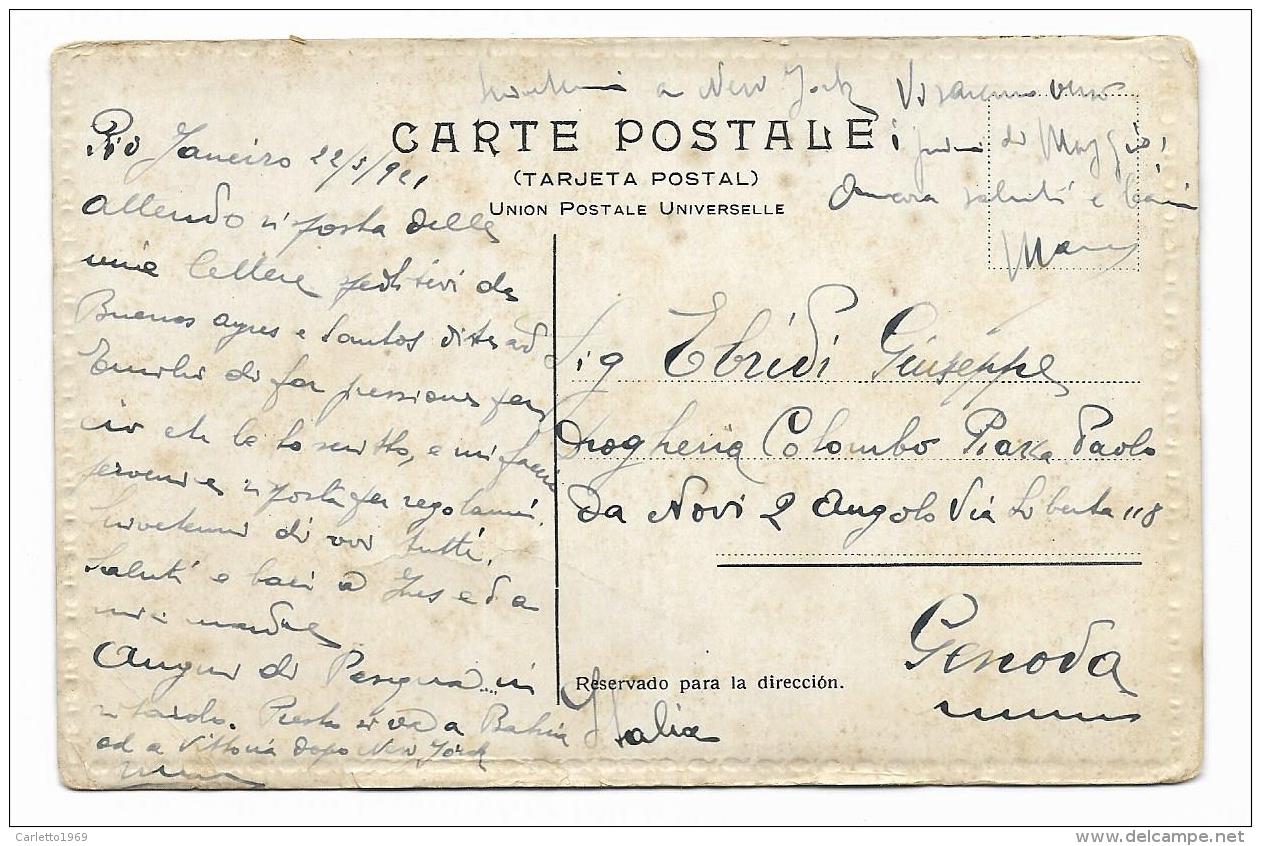 a New York Vi saremo verso
CARTE POSTALE i primi di Maggio,
(TARJETA POSTAL)
UNION POSTALE UNIVERSELLE
Ancora saluti e baci
Rio Janeiro 22/3/921
Attendo risposta delle
mie lettere speditevi da
Buenos Ayres e Santos dite ad
Emilio di far pressione per
ciò che le ho scritto, e mi faccia
pervenire risposta per regolarmi.
Scrivetemi di voi tutti.
Saluti e baci a Ines ed a
mia madre
Auguri di Pasqua.... in
ritardo. Presto si va a Bahia
ed a Vittoria dopo New York
Sig Ebridi Giuseppe
Drogheria Colombo Piazza Paolo
da Novi 2 Angolo Via Liberta 118
Genova
Reservado para la dirección.
Italia
Carletto1969
www.delcampe.net